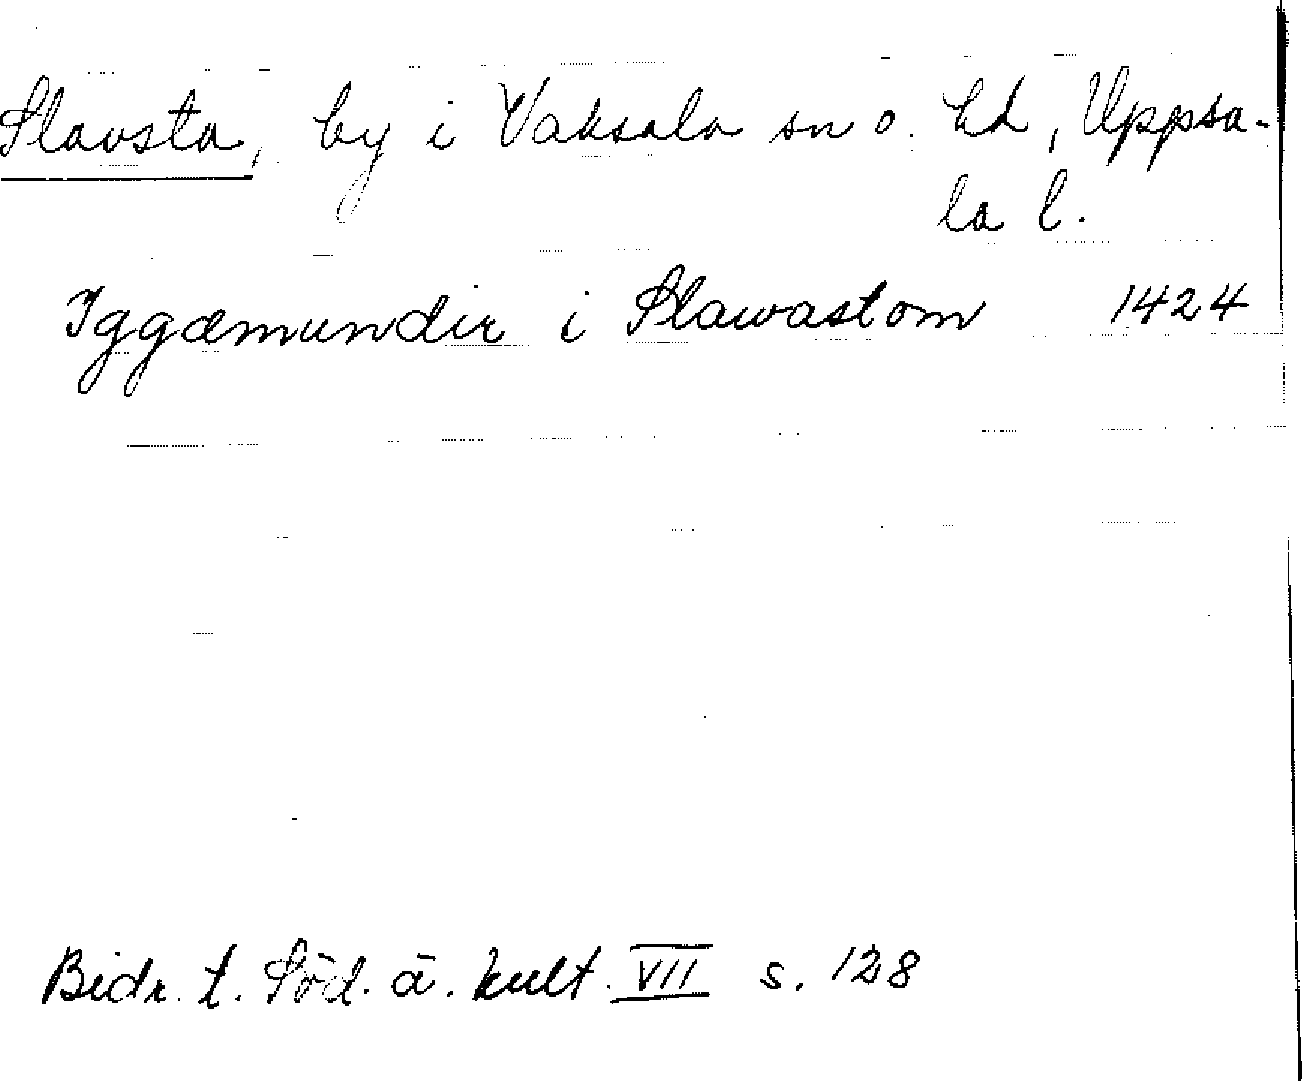 Slavsta, by i Vaksala sn o. hd, Uppsa-
la l.
Iggæmundir i Slawastom 1424
Bidr. t. Söd. ä. kult. VII s. 128